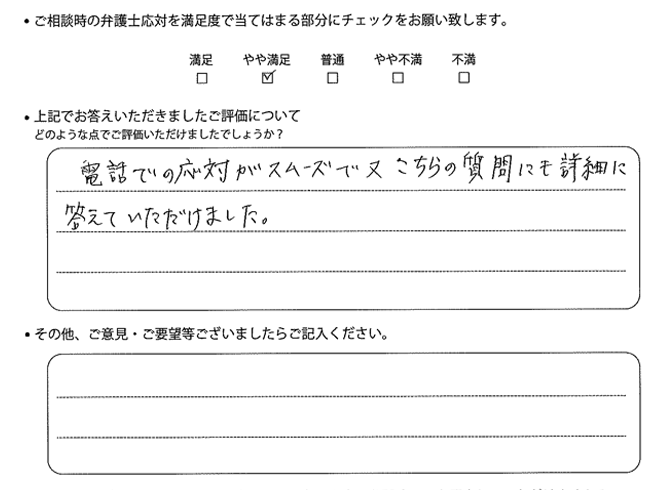 • ご相談時の弁護士応対を満足度で当てはまる部分にチェックをお願い致します。
満足 やや満足 普通 やや不満 不満
□ ☑ □ □ □
• 上記でお答えいただきましたご評価について
どのような点でご評価いただけましたでしょうか？
電話での応対がスムーズで又こちらの質問にも詳細に
答えていただけました。
• その他、ご意見・ご要望等ございましたらご記入ください。